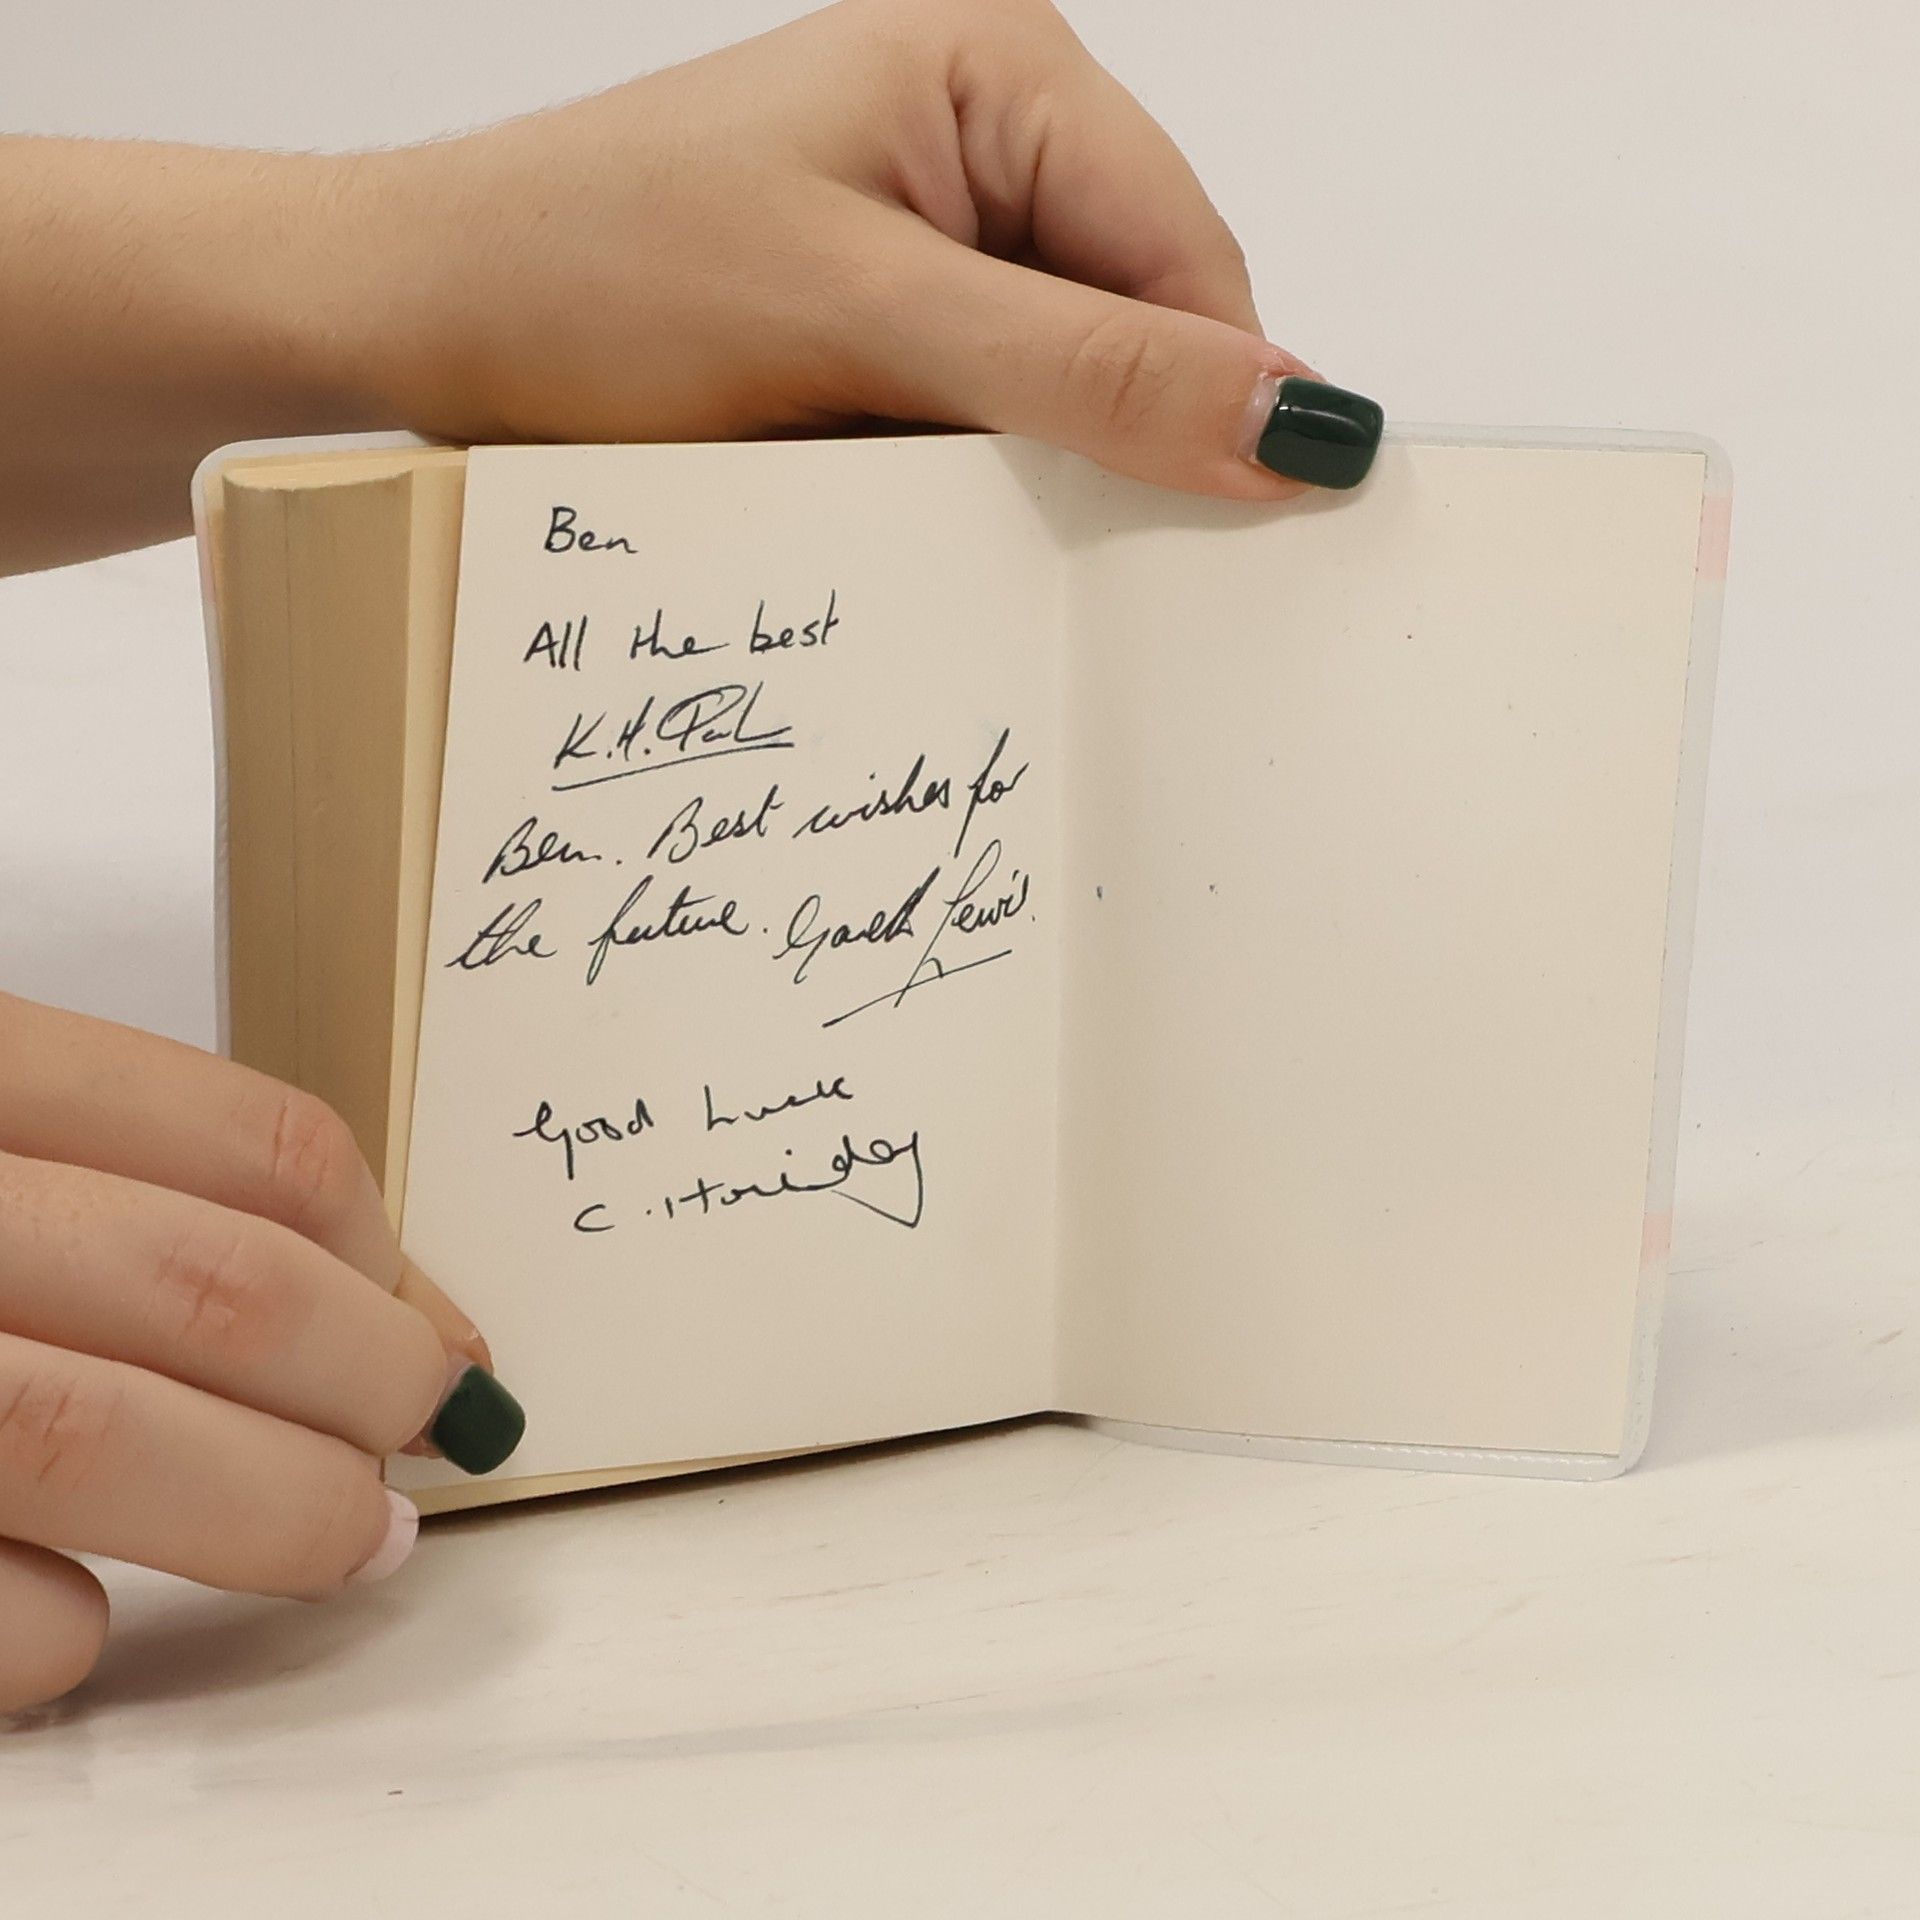 Ben
All the best
K.H.
Ben. Best wishes for
the future. Gareth Lewis.
Good Luck
C.